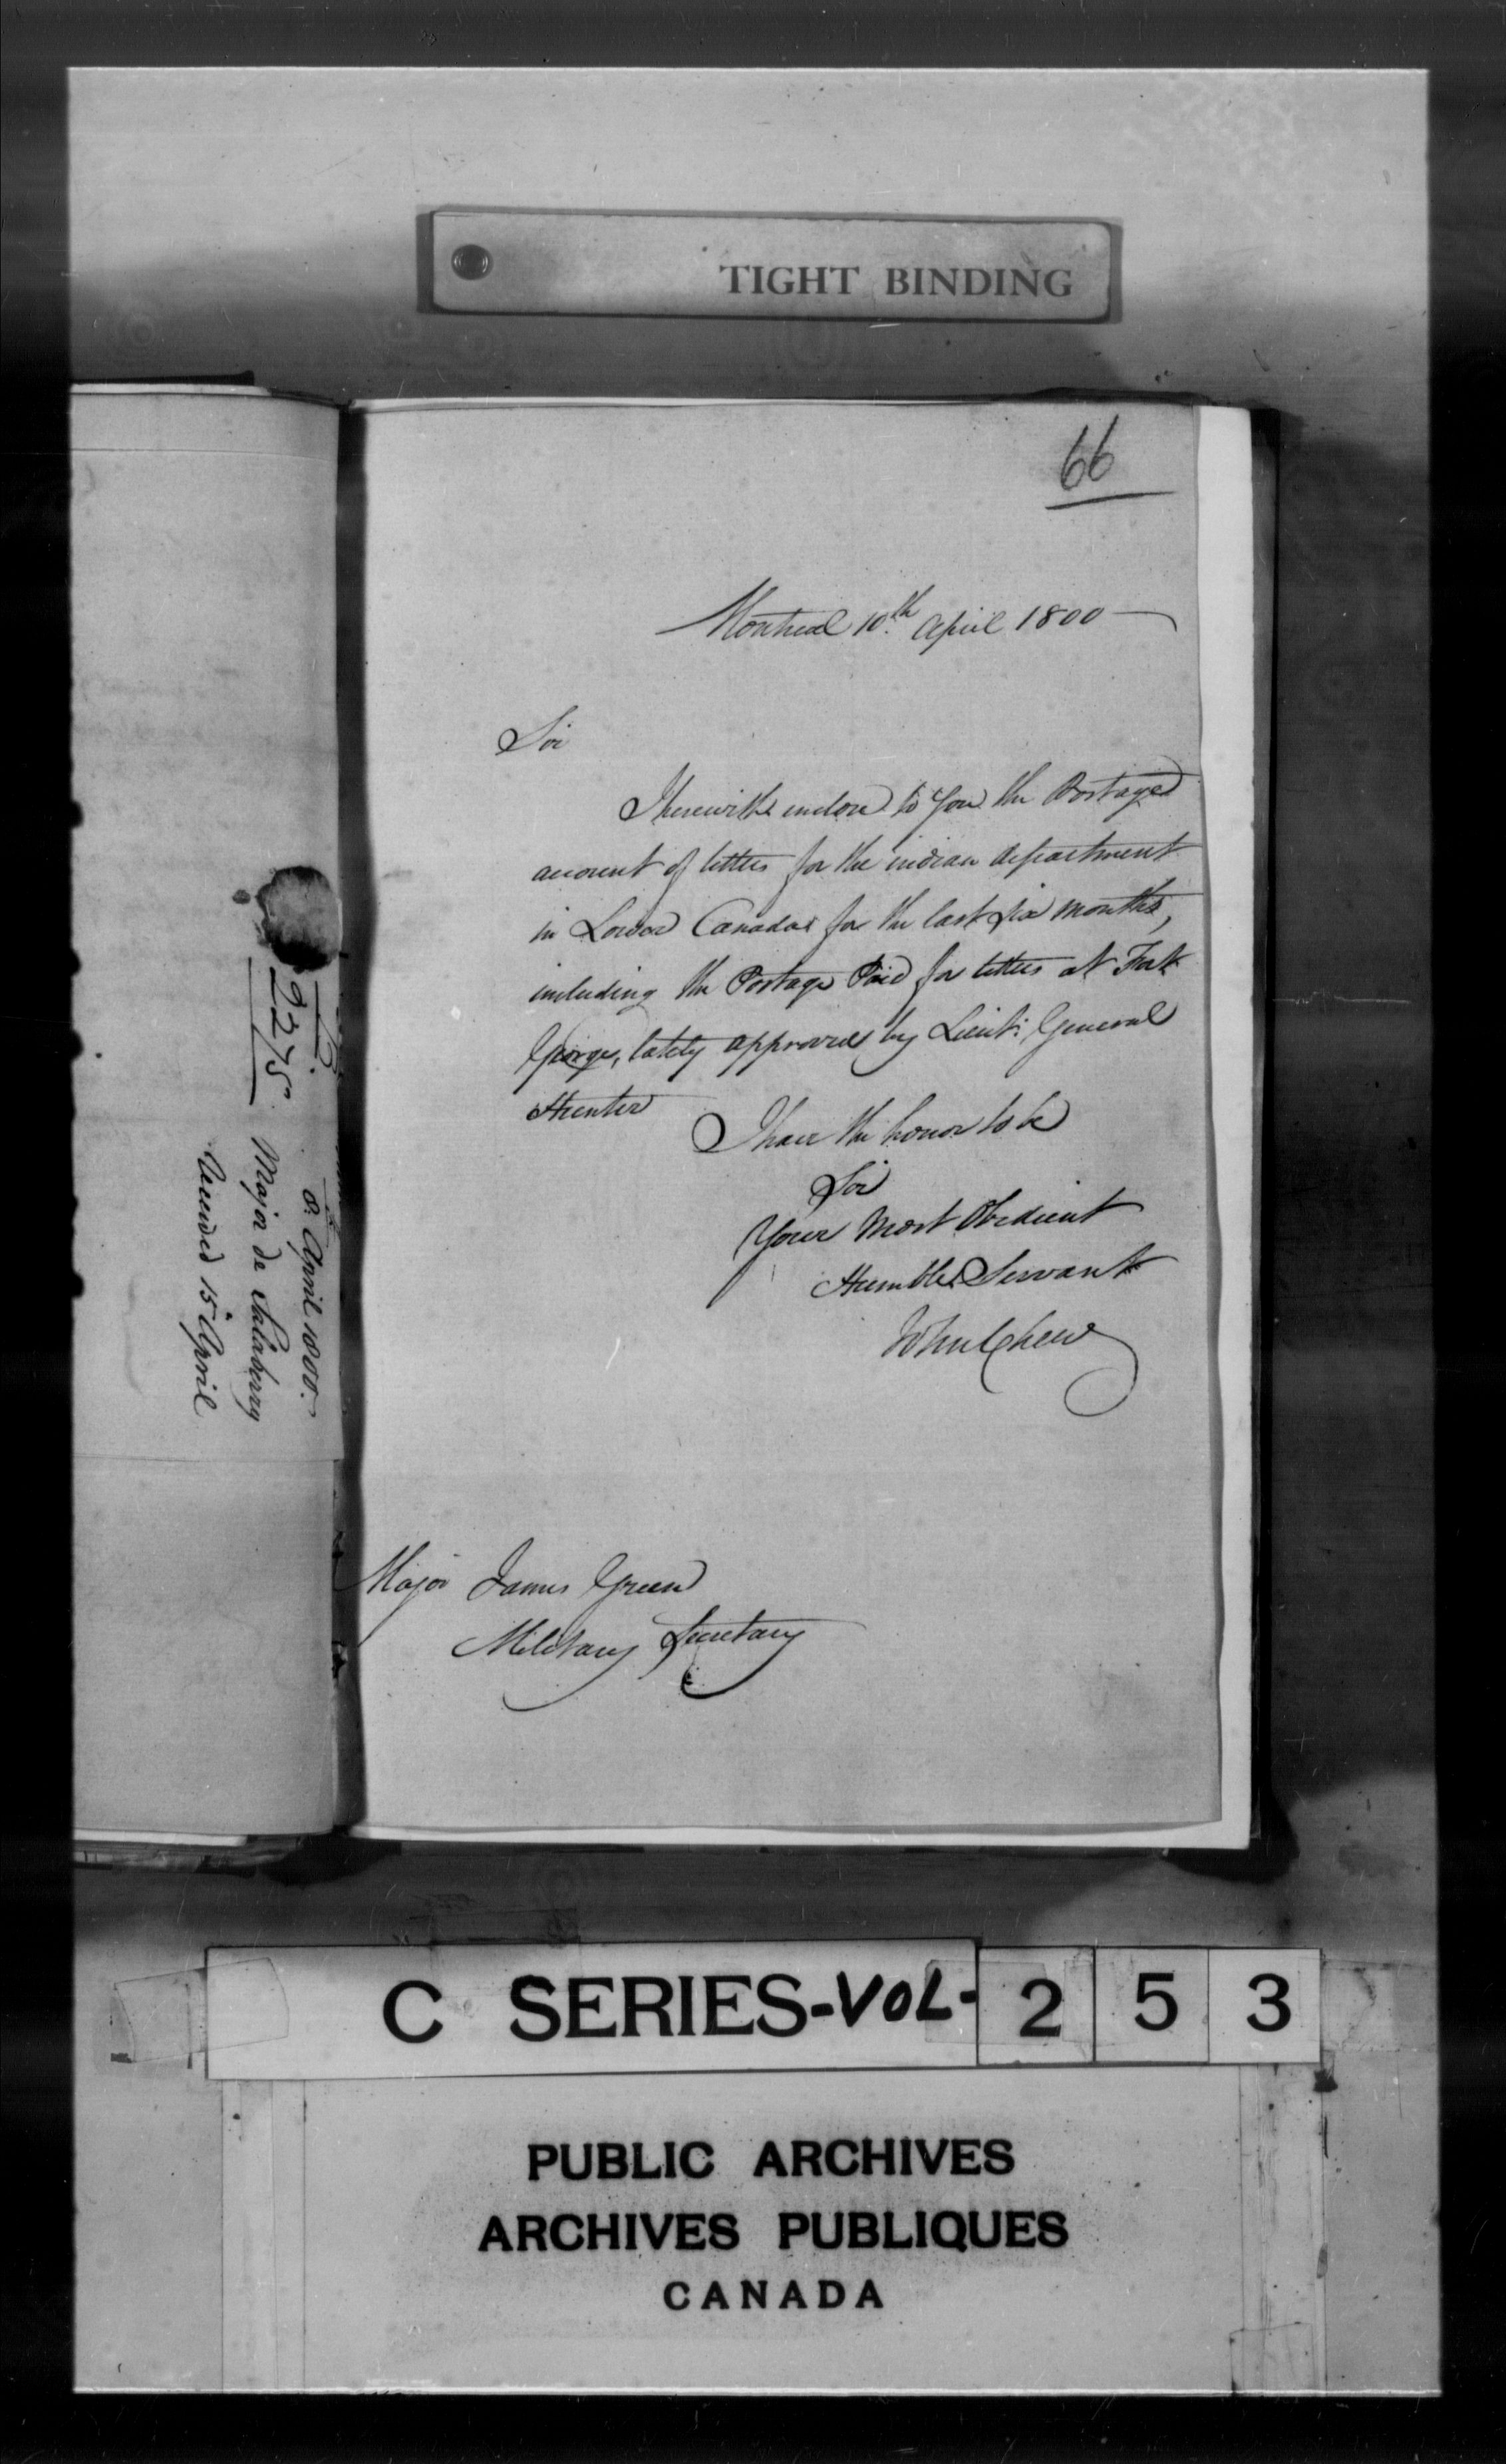 TIGHT BINDING
66
Montreal 10th April 1800
Sir
I herewith enclose to You the Postage
account of letters for the indian department
in Lower Canada for the last six months,
including the Postage Paid for letters at Fort
George, lately approved by Lieut: General
Hunter
I have the honor to be
Sir
Your Most Obedient
Humble Servant
John Chew
Major James Green
Military Secretary
April 1800.
Major de Salaberry
15 April
C SERIES-VOL-253
PUBLIC ARCHIVES
ARCHIVES PUBLIQUES
CANADA